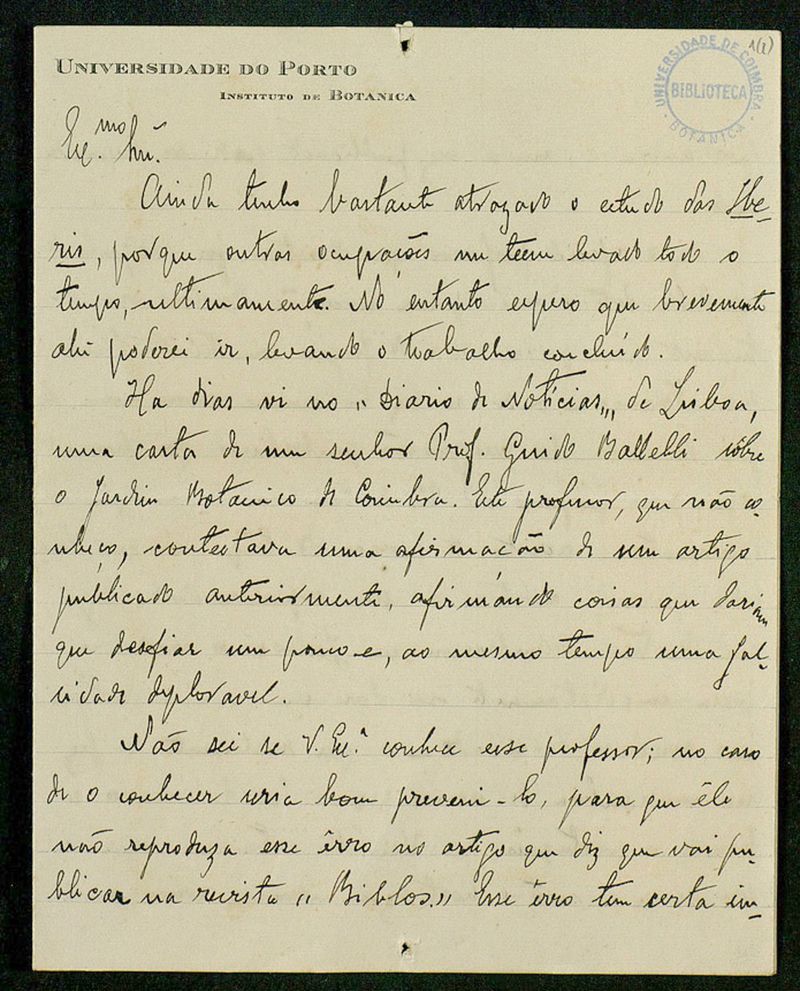 UNIVERSIDADE DO PORTO
INSTITUTO DE BOTANICA
UNIVERSIDADE DE COIMBRA
BIBLIOTECA
BOTANICA
1(1)
Ex.mo Snr.
Ainda tenho bastante atrazado o estudo das Ibe-
ris, porque outras ocupações me teem levado todo o
tempo, ultimamente. No entanto espero que brevemente
ahi poderei ir, levando o trabalho concluído.
Ha dias vi no "Diario de Noticias", de Lisboa,
uma carta de um senhor Prof. Guido Battelli sôbre
o Jardim Botanico de Coimbra. Este professor, que não co-
nheço, contestava uma afirmação de um artigo
publicado anteriormente, afirmando coisas que dariam
que desfiar um pouco e, ao mesmo tempo uma fal-
sidade deploravel.
Não sei se V. Ex.ª conhece esse professor; no caso
de o conhecer seria bom preveni-lo, para que êle
não reproduza esse êrro no artigo que diz que vai pu-
blicar na revista "Biblos." Esse êrro tem certa im-